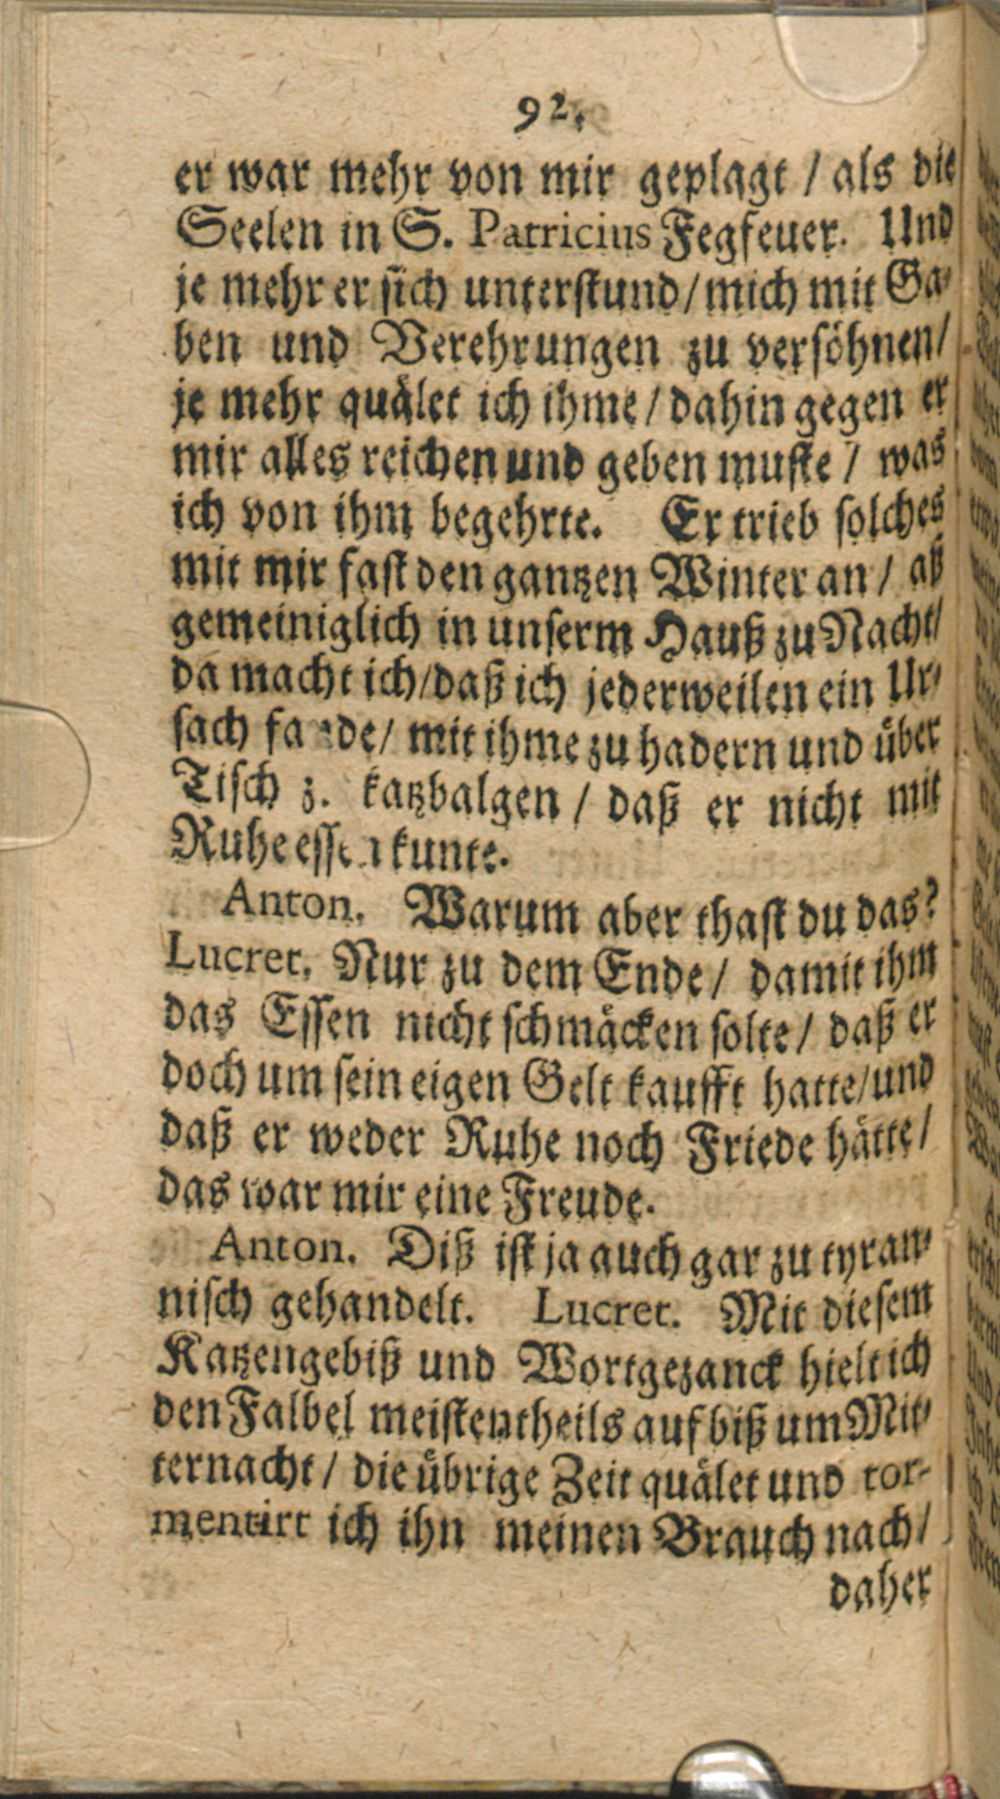 92.
er war mehr von mir geplagt / als die
Seelen in S. Patricius Fegfeuer. Und
je mehr er sich unterstund / mich mit Ga-
ben und Verehrungen zu versöhnen /
je mehr quälet ich ihme / dahin gegen er
mir alles reichen und geben muste / was
ich von ihm begehrte. Er trieb solches
mit mir fast den gantzen Winter an / aß
gemeiniglich in unserm Hauß zu Nacht /
da macht ich / daß ich jederweilen ein Ur-
sach fande / mit ihme zu hadern und über
Tisch z. katzbalgen / daß er nicht mit
Ruhe essen kunte.
Anton. Warum aber thast du das?
Lucret. Nur zu dem Ende / damit ihm
das Essen nicht schmäcken solte / daß er
doch um sein eigen Gelt kaufft hatte / und
daß er weder Ruhe noch Friede hätte /
das war mir eine Freude.
Anton. Diß ist ja auch gar zu tyran-
nisch gehandelt. Lucret. Mit diesem
Katzengebiß und Wortgezanck hielt ich
den Falbel meistentheils auf biß um Mit-
ternacht / die übrige Zeit quälet und tor-
mentirt ich ihn meinen Brauch nach /
daher